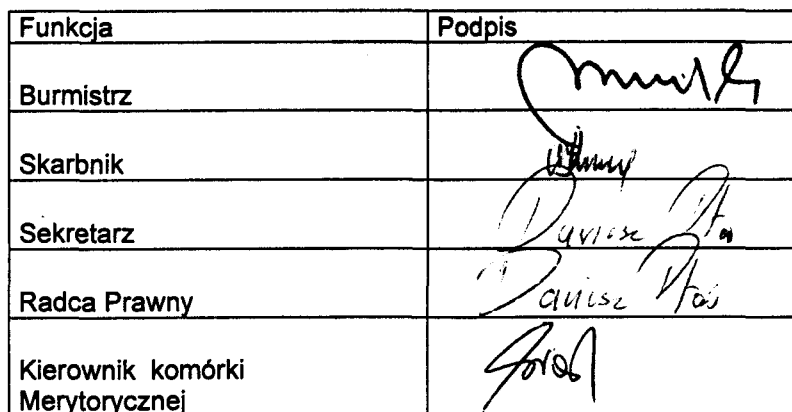 Funkcja Podpis
Burmistrz
Skarbnik
Sekretarz Dariusz
Radca Prawny Dariusz
Kierownik komórki
Merytorycznej